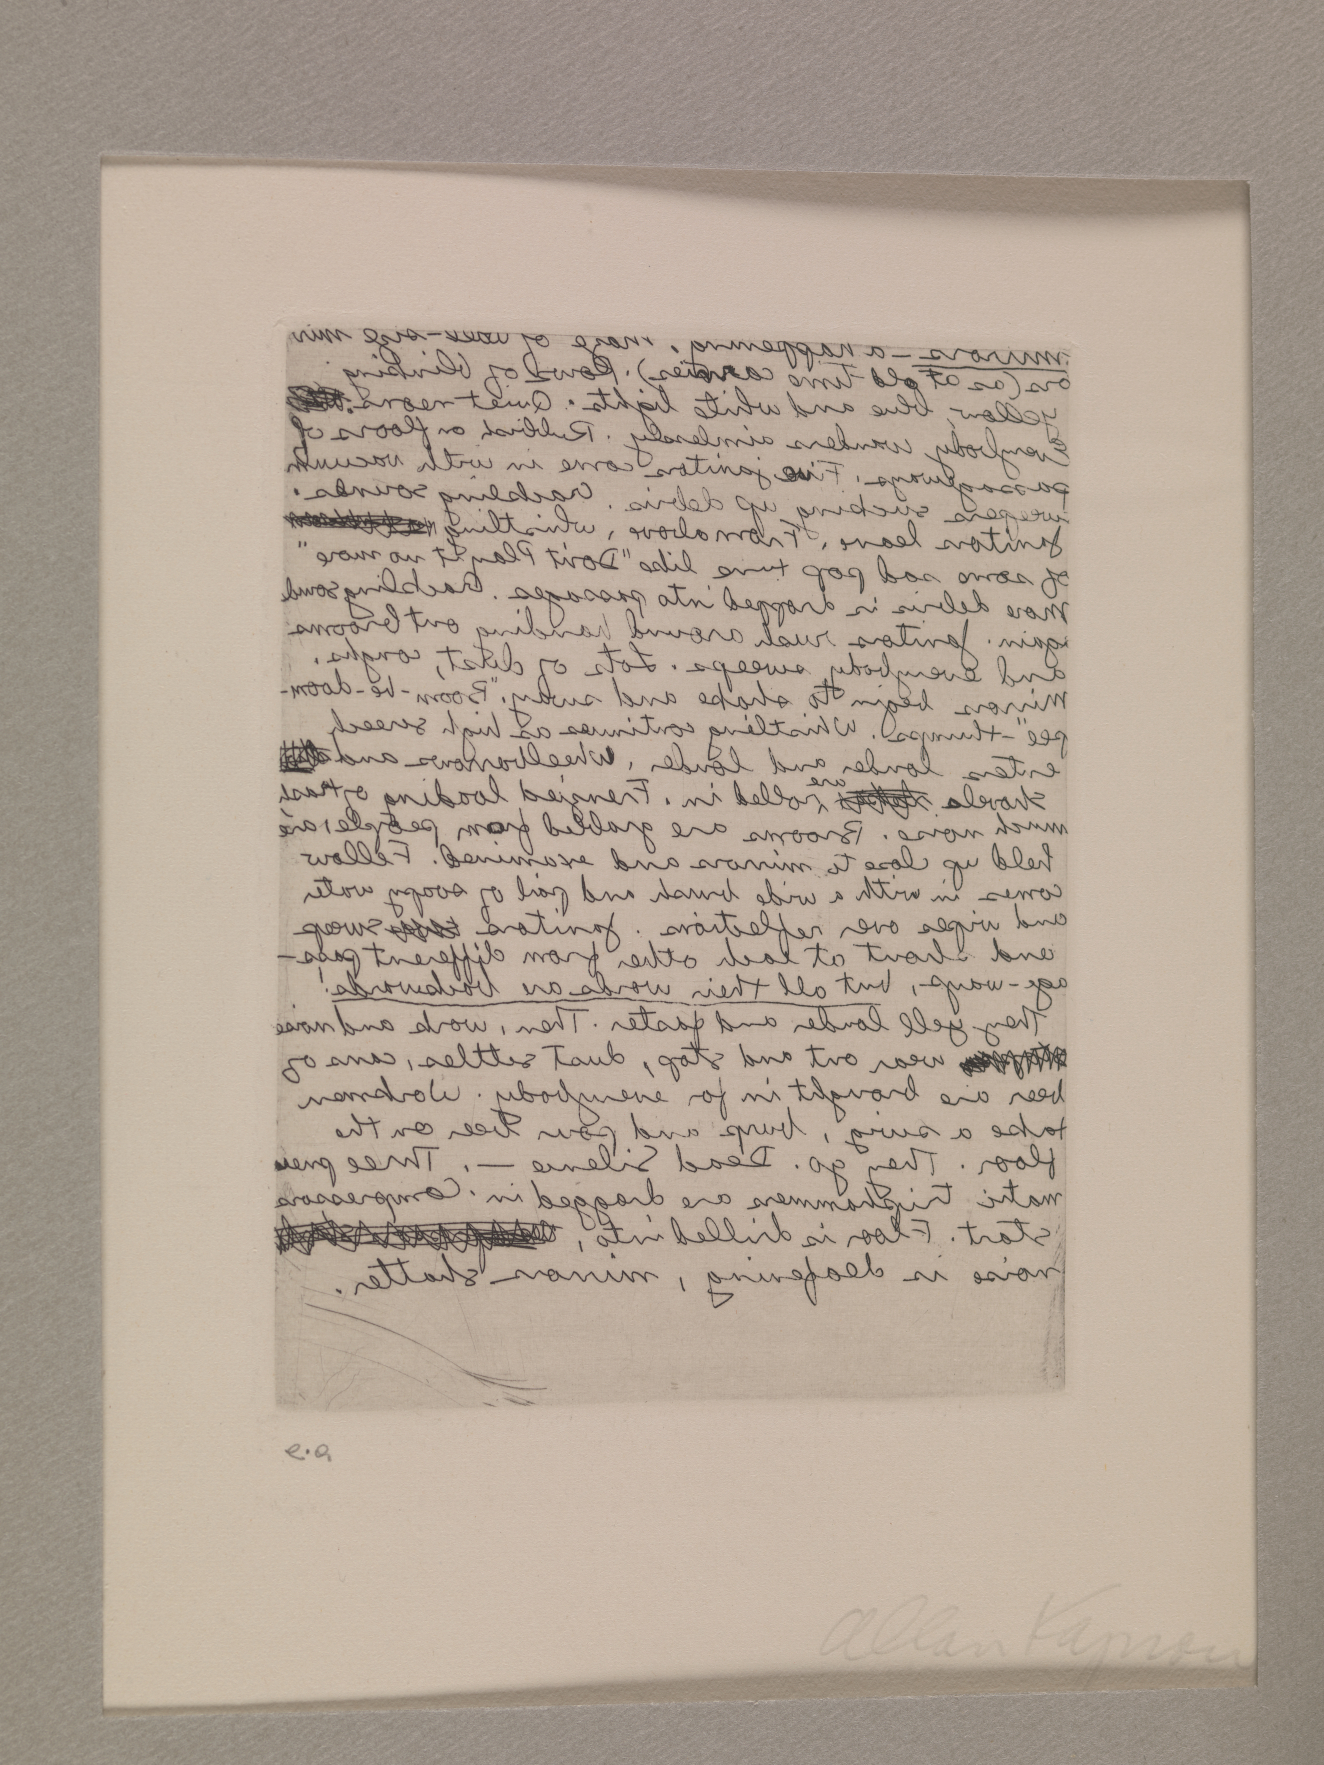 mirrors – a happening. Maze of wall-size mirr
ors (as at old time carnies). Rows of blinking
yellow, blue and white lights. Quiet neons.
Everybody wanders aimlessly. Rubbish on floors of
passageways. Five janitors come in with vacuum
sweepers sucking up debris. Crackling sounds.
Janitors leave. From above, whistling
of some sad pop tune like "Don't Play It no more"
More debris is dropped into passages. Crackling sound
again. Janitors rush around handing out brooms
and everybody sweeps. Lots of dust, coughs.
Mirrors begin to shake and sway. "Boom-be-doom-
pee"-thumps. Whistling continues as high screech
enters louder and louder. Wheelbarrows and
shovels are rolled in. Frenzied loading of trash
much noise. Brooms are grabbed from people; are
held up close to mirrors and examined. Fellow
comes in with a wide brush and pail of soapy wate
and wipes over reflections. Janitors sweep
and shout at each other from different pass-
age-ways, but all their words are backwards!
They yell louder and faster. Then, work and noise
wear out and stop, dust settles, cans of
beer are brought in for everybody. Workmen
take a swig, burp and pour beer on the
floor. They go. Dead Silence –. Three pneu
matic triphammers are dragged in. Compressors
start. Floor is drilled into,
noise is deafening, mirrors shatter.
e.a
Allan Kaprow